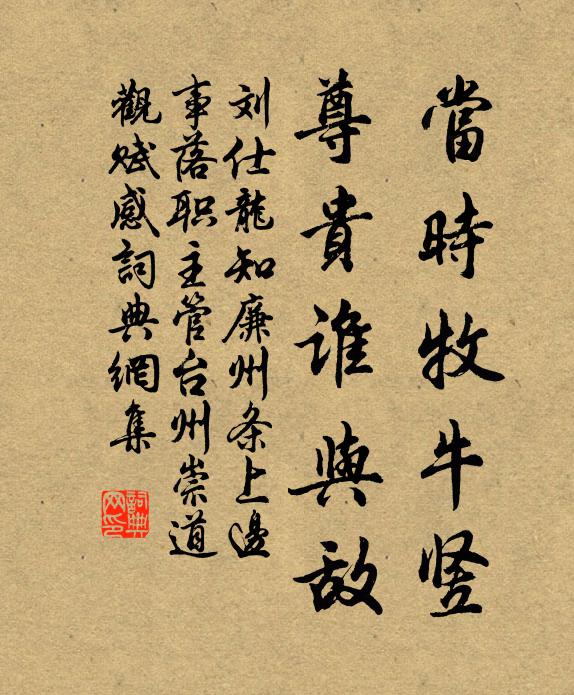 當時牧牛竖
尊貴谁與敌
刘仕龍知廉州条上邊
事落职主管台州崇道
觀赋感詞典網集
詞典网印